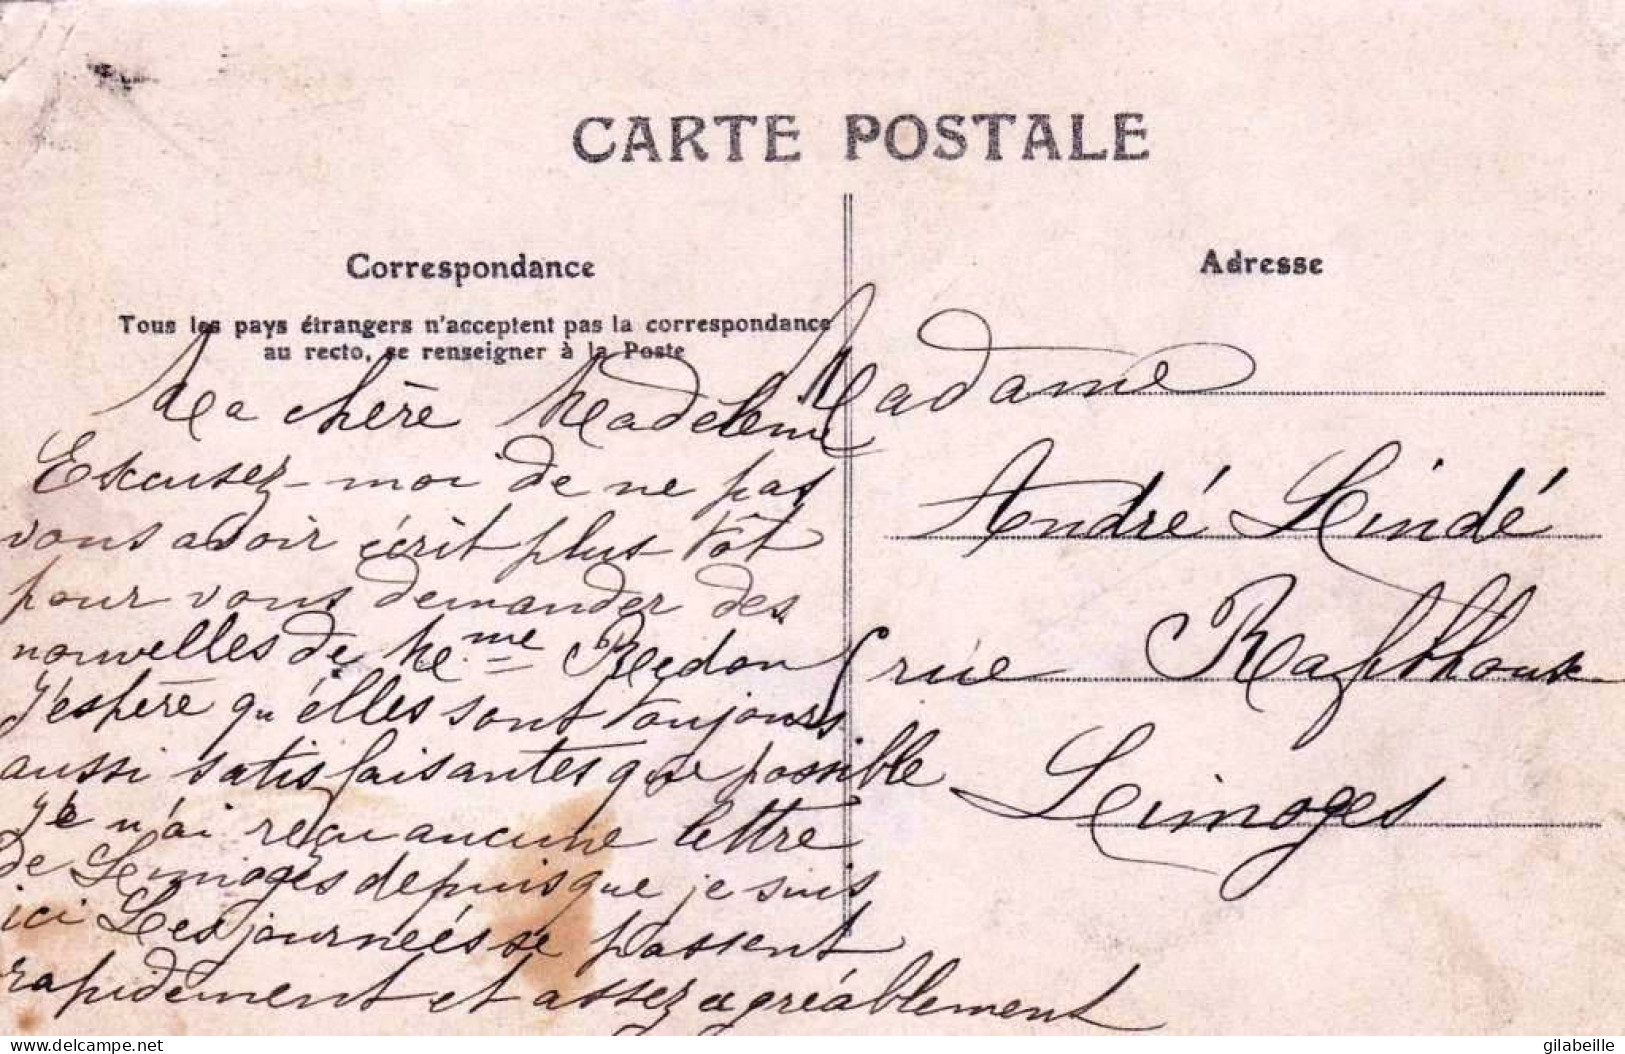 CARTE POSTALE
Correspondance
Tous les pays étrangers n'acceptent pas la correspondance
au recto, se renseigner à la Poste
Ma chère Madeleine
Excusez-moi de ne pas
vous avoir écrit plus tôt
pour vous demander des
nouvelles de Mme Redon
J'espère qu'elles sont toujours
aussi satisfaisantes que possible
Je n'ai reçu aucune lettre
de Limoges depuis que je suis
ici Les journeés se passent
rapidement et assez agréablement
Adresse
Madame
André Lindé
rue
Limoges
delcampe.net
gilabeille